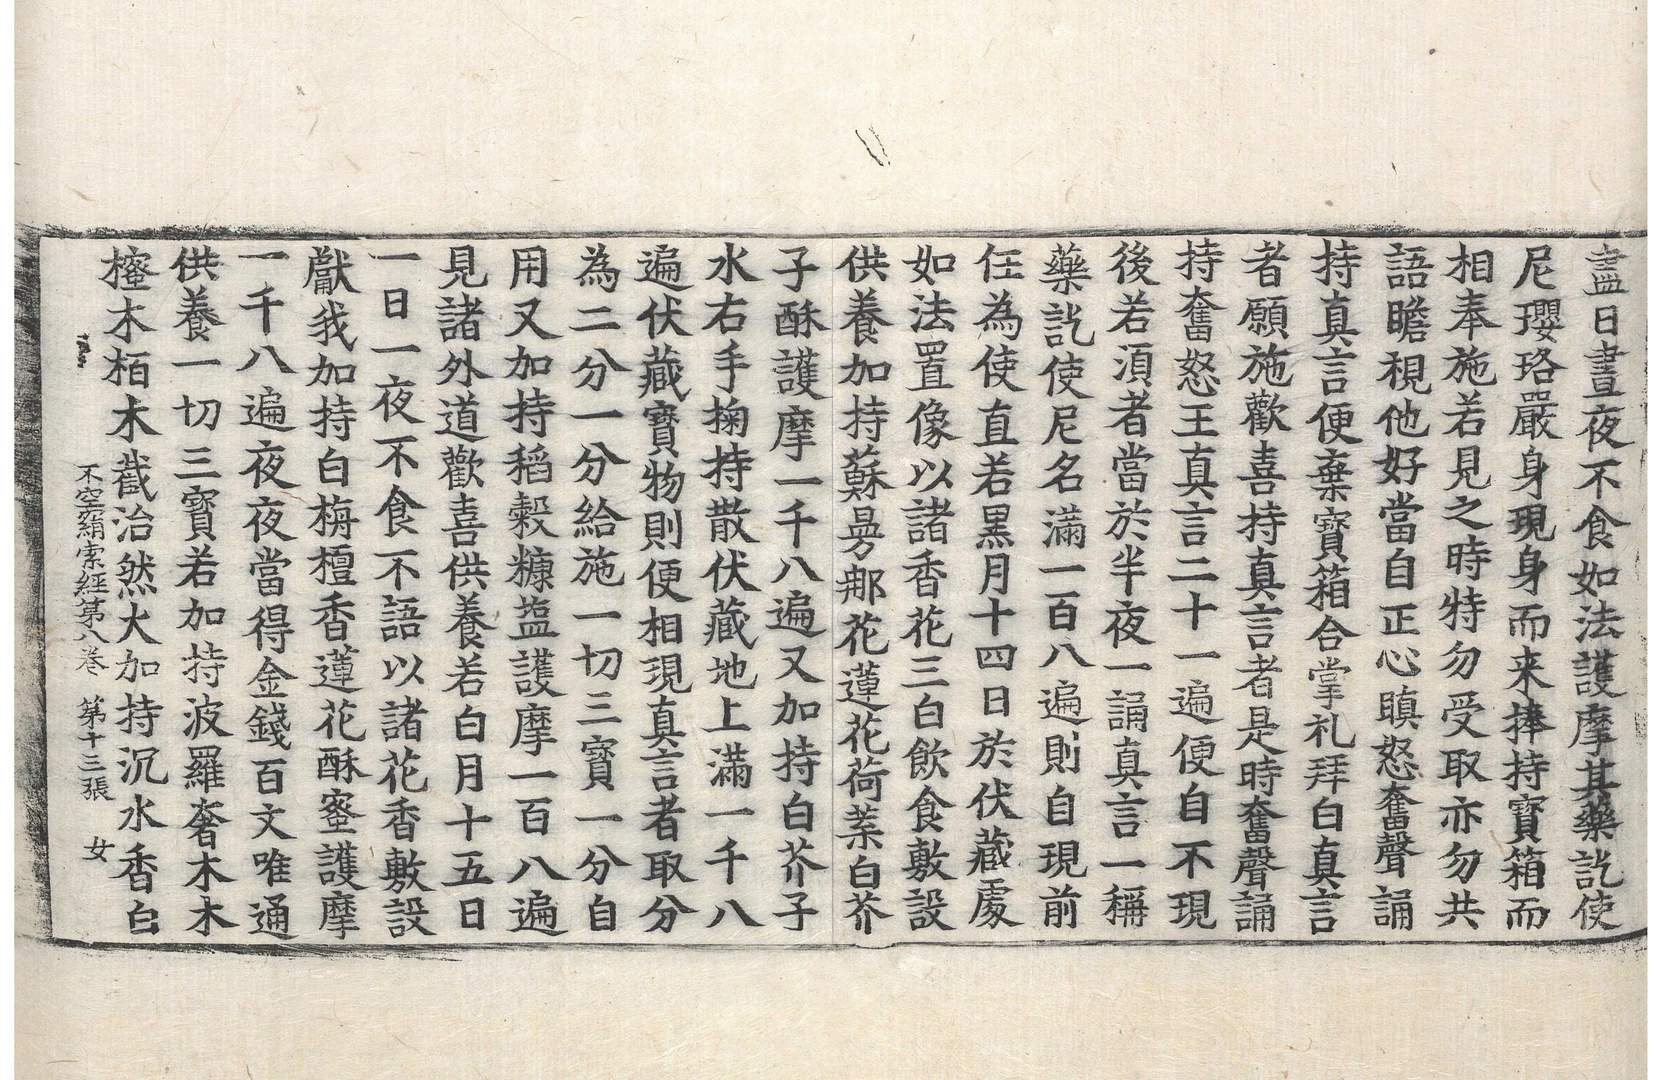 盡日晝夜不食如法護摩其藥訖使
尼瓔珞嚴身現身而来捧持寶箱而
相奉施若見之時特勿受取亦勿共
語瞻視他好當自正心瞋怒奮聲誦
持真言便棄寶箱合掌礼拜白真言
者願施歡喜持真言者是時奮聲誦
持奮怒王真言二十一遍便自不現
後若須者當於半夜一誦真言一稱
藥訖使尼名滿一百八遍則自現前
任為使直若黑月十四日於伏藏處
如法置像以諸香花三白飲食敷設
供養加持蘇曼那花蓮花荷葉白芥
子酥護摩一千八遍又加持白芥子
水右手掬持散伏藏地上滿一千八
遍伏藏寶物則便相現真言者取分
為二分一分給施一切三寶一分自
用又加持稻穀糠塩護摩一百八遍
見諸外道歡喜供養若白月十五日
一日一夜不食不語以諸花香敷設
獻我加持白栴檀香蓮花酥蜜護摩
一千八遍夜夜當得金錢百文唯通
供養一切三寶若加持波羅奢木木
櫁木栢木截治然火加持沉水香白
不空羂索經第八卷 第十三張 女